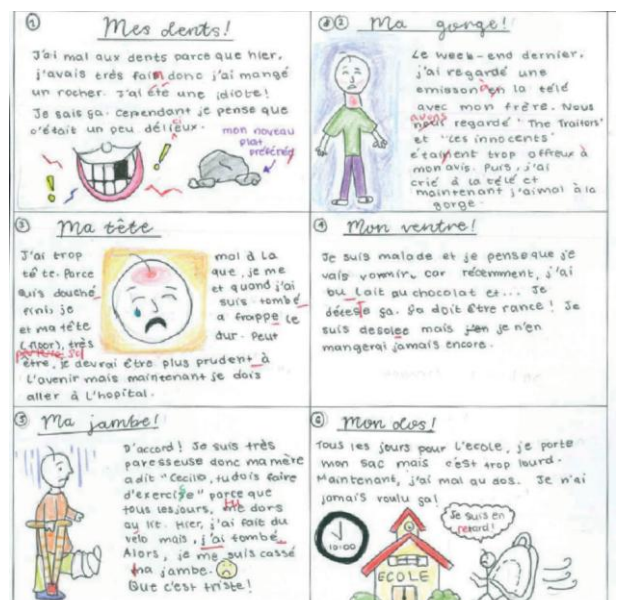 ① Mes dents!
J'ai mal aux dents parce que hier,
j'avais très faim donc j'ai mangé
un rocher. J'ai été une idiote!
Je sais ça. Cependant je pense que
c'était un peu délieux.
mon noveau
plat
préféréd
② Ma gorge!
Le week-end dernier,
j'ai regardé une
emission la télé
avec mon frère. Nous
avons
regardé "The Traitors'
et "Les innocents'
étaient trop affreux à
mon avis. Puis, j'ai
crié à la télé et
maintenant j'aimal à la
gorge.
③ Ma tête
J'ai trop mal à la
tête. Parce que, je me
suis douché et quand j'ai
fini, je suis tombé
et ma tête a frappé le
(floor), très dur. Peut
être, je devrai être plus prudent à
l'avenir mais maintenant je dois
aller à L'hopital.
④ Mon ventre!
Je suis malade et je pense que je
vais vommir. car récemment, j'ai
bu Lait au chocolat et... Je
déteste ça. Ça doit être rance! Je
suis desolée mais je n'en
mangerai jamais encore.
⑤ Ma jambe!
D'accord! Je suis très
paresseuse donc ma mère
a dit "Cecilia, tu dois faire
d'exercise" parce que
tous les jours, dors
au lit. Hier, j'ai fait du
vélo mais, j'ai tombé.
Alors, je me suis cassé
ma jambe.
Que c'est triste!
⑥ Mon dos!
Tous les jours pour L'ecole, je porte
mon sac mais c'est trop lourd.
Maintenant, j'ai mal au dos. Je n'ai
jamais voulu ça!
Je suis en
retard!
10:00
ECOLE